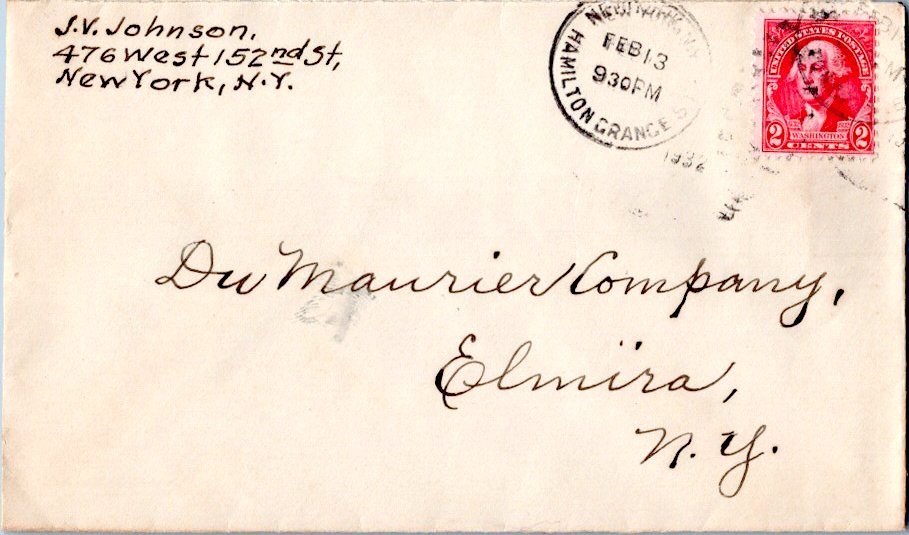 J.V. Johnson,
476 West 152nd St,
New York, N.Y.
NEW YORK, N.Y.
FEB 13
930PM
HAMILTON GRANGE
1932
UNITED STATES POSTAGE
WASHINGTON
2 CENTS 2
Du Maurier Company,
Elmira,
N.Y.